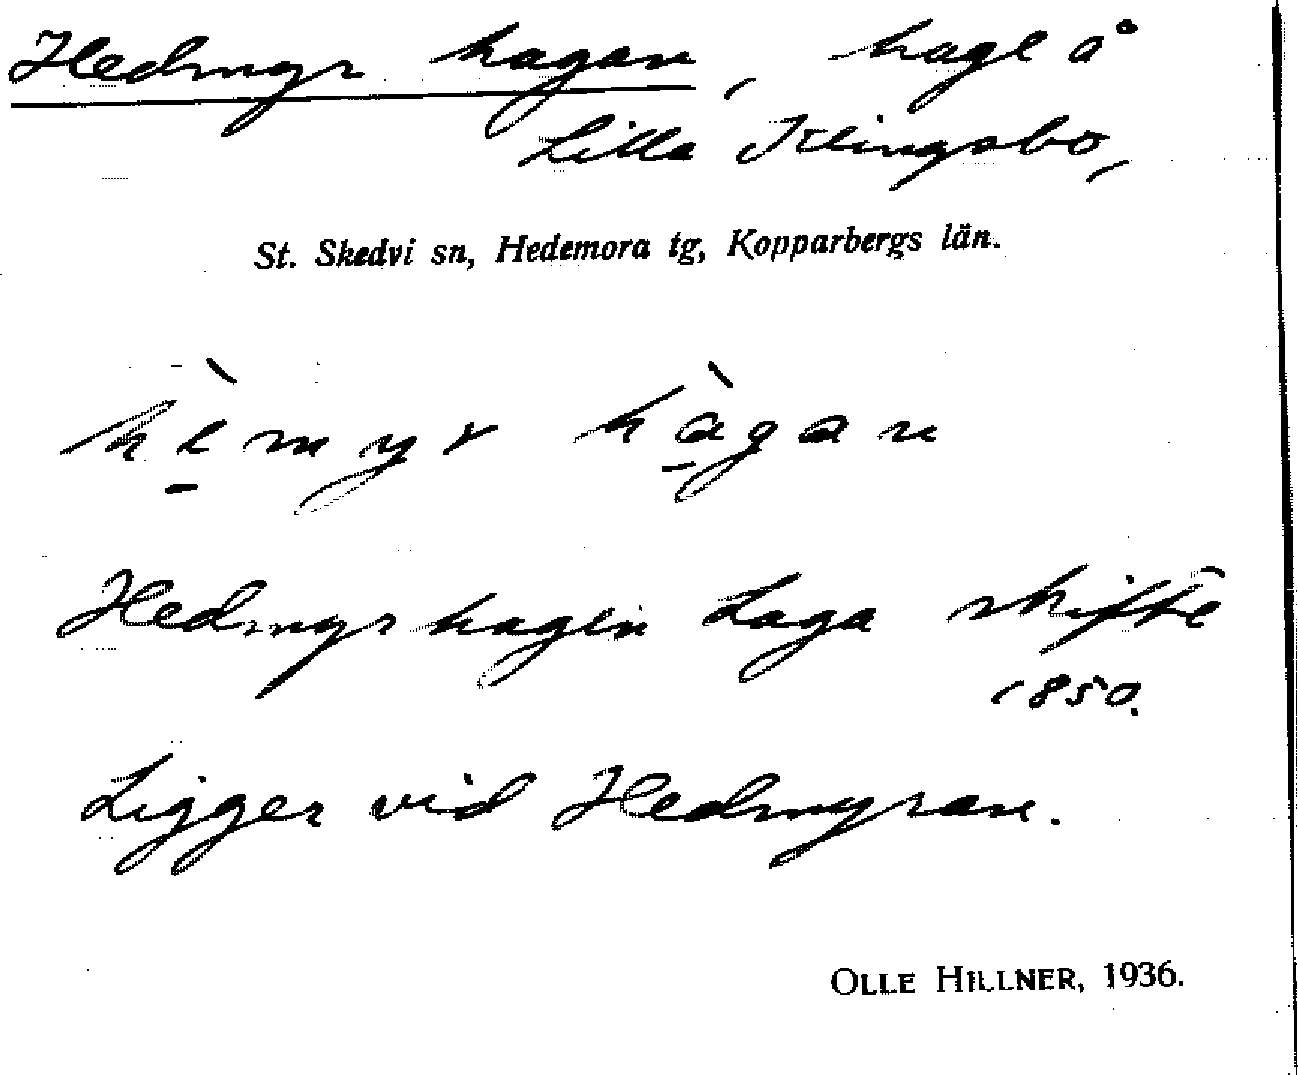 Hedmyr hagan, hage å
Lilla Klingsbo,
St. Skedvi sn, Hedemora tg, Kopparbergs län.
hè̱myr hà̱gan
Hedmyrhagen Laga skifte
1850.
Ligger vid Hedmyran.
OLLE HILLNER, 1936.